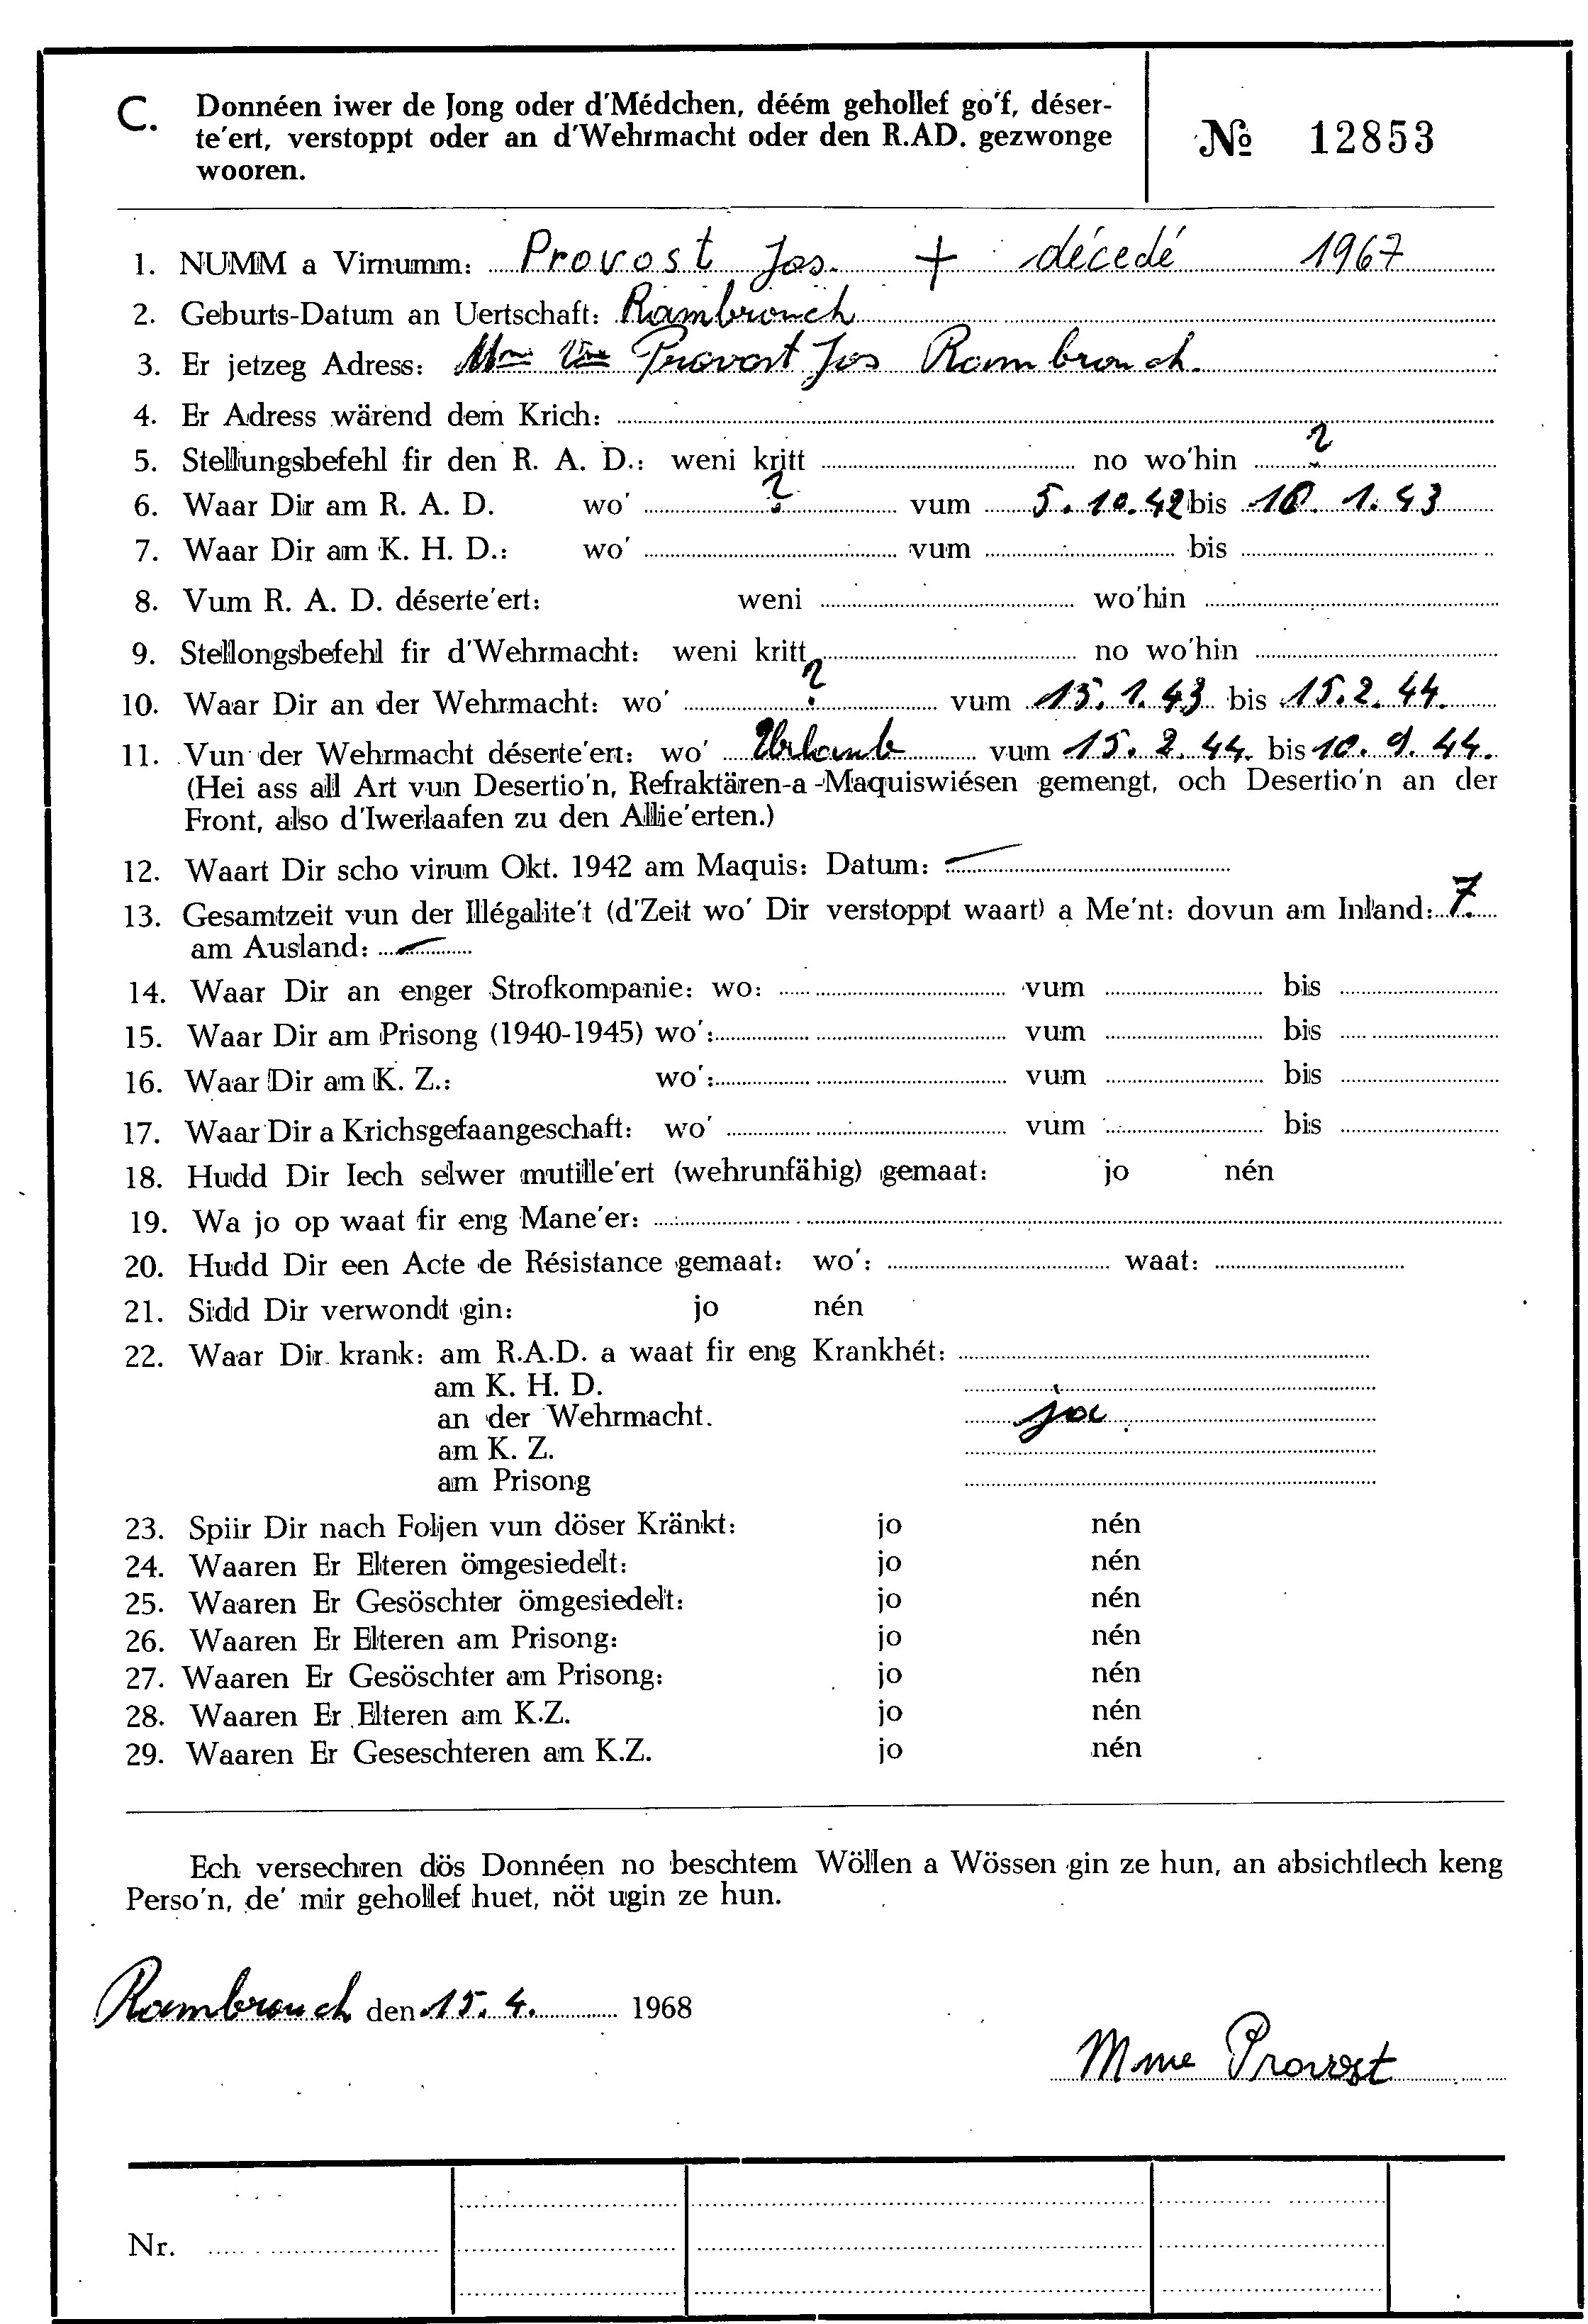 C. Donnéen iwer de Jong oder d'Médchen, déém gehollef go'f, déser-
te'ert, verstoppt oder an d'Wehrmacht oder den R.AD. gezwonge
wooren.
№ 12853
1. NUMM a Virnumm: Provost Jos. + décedé 1967
2. Geburts-Datum an Uertschaft: Rambrouch
3. Er jetzeg Adress: Mme Vve Provost Jos Rambrouch.
4. Er Adress wärend dem Krich:
5. Stellungsbefehl fir den R. A. D.: weni kritt no wo'hin ?
6. Waar Dir am R. A. D. wo' ? vum 5. 10. 42 bis 10. 1. 43
7. Waar Dir am K. H. D.: wo' vum bis
8. Vum R. A. D. déserte'ert: weni wo'hin
9. Stellongsbefehl fir d'Wehrmacht: weni kritt no wo'hin
10. Waar Dir an der Wehrmacht: wo' ? vum 15. 1. 43 bis 15. 2. 44.
11. Vun der Wehrmacht déserte'ert: wo' Urlaub vum 15. 2. 44. bis 10. 9. 44.
(Hei ass all Art vun Desertio'n, Refraktären-a-Maquiswiésen gemengt, och Desertio'n an der
Front, also d'Iwerlaafen zu den Allie'erten.)
12. Waart Dir scho virum Okt. 1942 am Maquis: Datum: —
13. Gesamtzeit vun der Illégalite't (d'Zeit wo' Dir verstoppt waart) a Me'nt: dovun am Inland: 7.
am Ausland: —
14. Waar Dir an enger Strofkompanie: wo: vum bis
15. Waar Dir am Prisong (1940-1945) wo': vum bis
16. Waar Dir am K. Z.: wo': vum bis
17. Waar Dir a Krichsgefaangeschaft: wo' vum bis
18. Hudd Dir Iech selwer mutille'ert (wehrunfähig) gemaat: jo nén
19. Wa jo op waat fir eng Mane'er:
20. Hudd Dir een Acte de Résistance gemaat: wo': waat:
21. Sidd Dir verwondt gin: jo nén
22. Waar Dir krank: am R.A.D. a waat fir eng Krankhét:
am K. H. D.
an der Wehrmacht. ja
am K. Z.
am Prisong
23. Spiir Dir nach Foljen vun döser Kränkt: jo nén
24. Waaren Er Elteren ömgesiedelt: jo nén
25. Waaren Er Gesöschter ömgesiedelt: jo nén
26. Waaren Er Elteren am Prisong: jo nén
27. Waaren Er Gesöschter am Prisong: jo nén
28. Waaren Er Elteren am K.Z. jo nén
29. Waaren Er Geseschteren am K.Z. jo nén
Ech versechren dös Donnéen no beschtem Wöllen a Wössen gin ze hun, an absichtlech keng
Perso'n, de' mir gehollef huet, nöt ugin ze hun.
Rambrouch den 15. 4. 1968
Mme Provost
Nr.